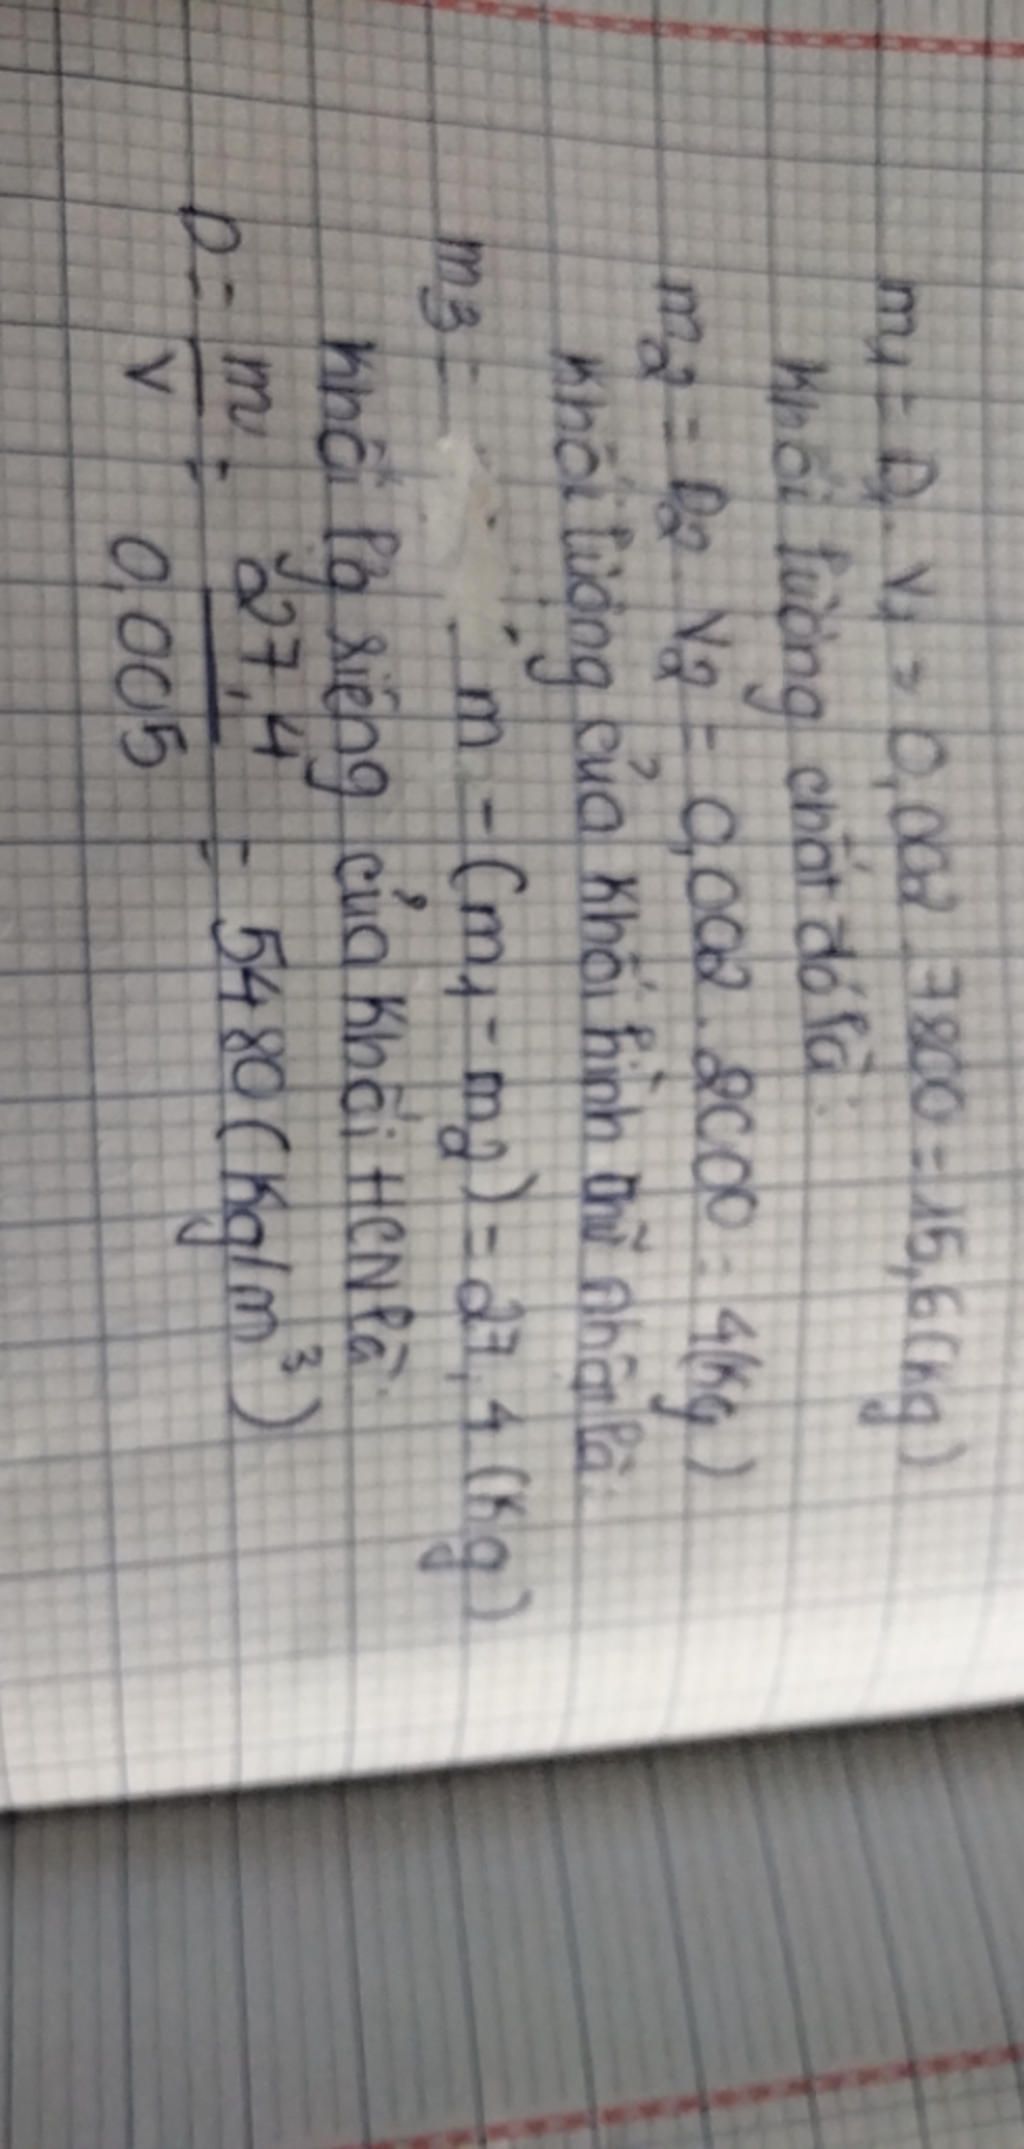 m1 = D1. V1 = 0,002. 7800 = 15,6 (kg)
Khối lượng chất đó là:
m2 = D2. V2 = 0,002. 2000 = 4 (kg)
Khối lượng của khối hình chữ nhật là:
m3 = m - (m1 - m2) = 27,4 (kg)
Khối lg riêng của khối HCN là:
D = m/V = 27,4/0,005 = 5480 (kg/m³)